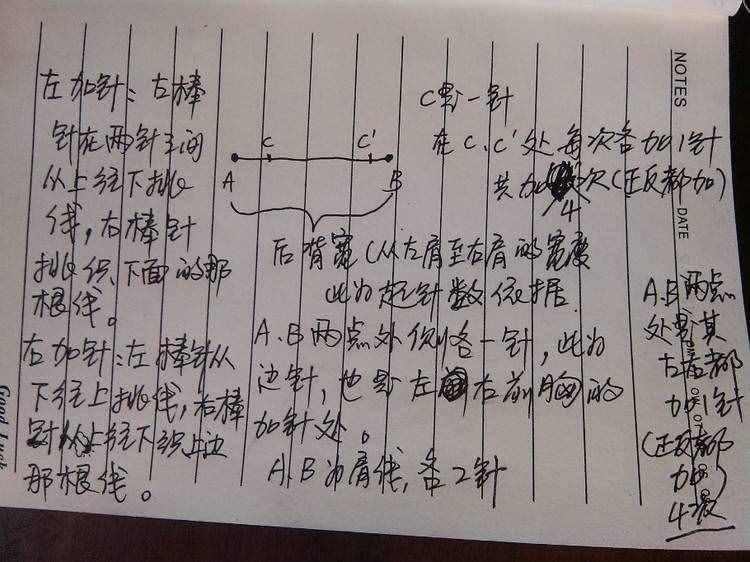 左加针：右棒
针在两针之间
从上往下挑
线，右棒针
挑织下面的那
根线。
右加针：左棒针从
下往上挑线，右棒
针从上往下织上边
那根线。
C是一针
在C、C'处每次各加1针
共加4次（正反都加）
C
C'
A
B
后背宽（从左肩至右肩的宽度
此为起针数依据
A、B两点处你留一针，此为
边针，也是左右前胸的
加针处。
A、B为肩线，各2针
A、B两点
处是其
左右都
加1针
（正反都
加）
4次
NOTES
DATE
Good Luck